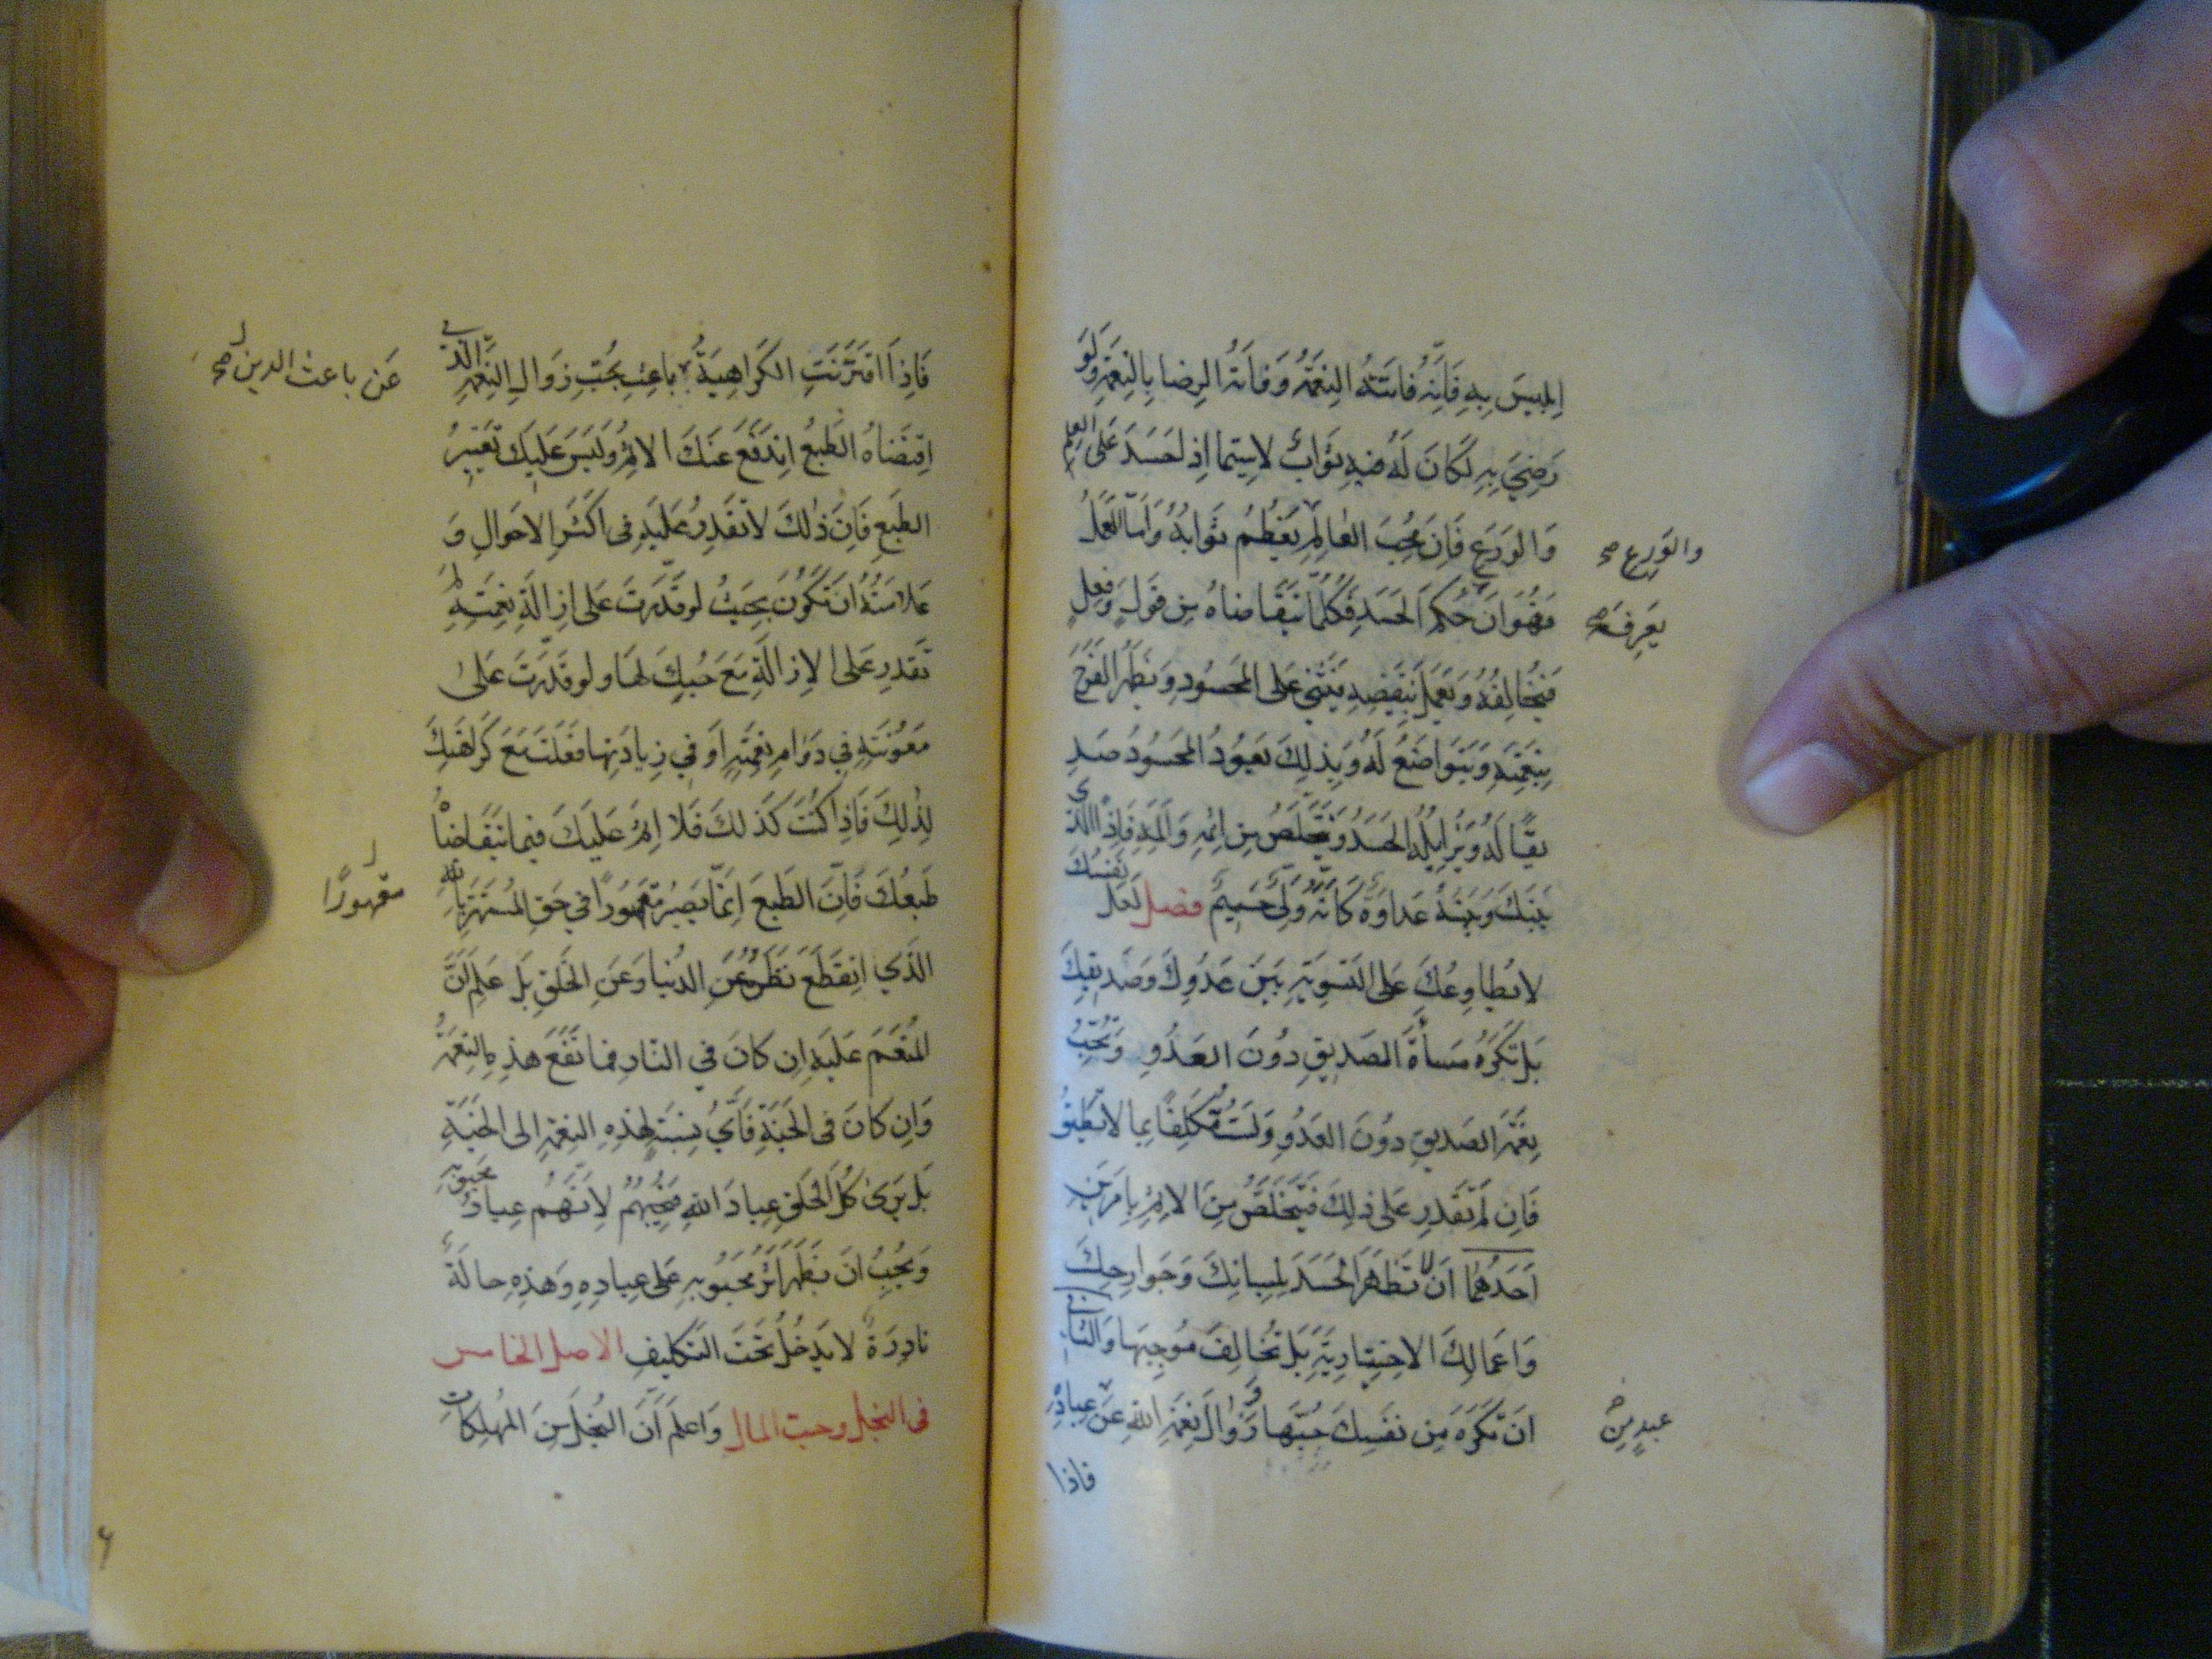 اِبليسَ بِهِ فَاِنَّهُ فَاتَتْهُ النِعمَةُ وَفَاتَهُ الرِضا بِالنِعمَةِ وَلَو
رَضِيَ بِهِ لَكَانَ لَهُ فيهِ ثَوَابٌ لاسِيَّما اِذ لحَسَدَ عَلى العِلمِ
وَالوَرَعِ فَاِنَ مُحِبَ العَالِمِ يَعظُمُ ثَوَابُهُ وَاَمّا العَمَلُ
والوَرِعِ صح
فَهُوَ اَنَ حُكمَ الحَسَدِ فَكُلَّما يَتَقَاضاهُ مِن قَولٍ وَفِعلٍ
يَعرِفَ صح
فَيُخَالِفُهُ وَيَعمَلُ بِنَقيضِهِ فَيُثني عَلى المحَسُودِ وَيُظهِرُ الفَرَحَ
بِنِعمَتِهِ وَيَتَوَاضَعُ لَهُ وَبِذلِكَ يَعُودُ المحَسُودُ صَدِ
يقًا لَهُ وَيُزَايِلُهُ الحَسَدُ وَيَتَخَلَّصُ مِن اِثمِهِ وَاَلَمِهِ فَاِذَا الَّذي
بَينَكَ وَبَينَهُ عَدَاوَةٌ كَاَنَّهُ وَلِيٌّ حَميمٌ فصل لَعَلَّ نَفسُكَ
لاتُطاوِعُكَ عَلى التَسوِيَةِ بَينَ عَدُوِكَ وَصَديقِكَ
بَل تَكرَهُ مَسأَةَ الصَديقِ دوُنَ العَدُوِ وَتُحِبُّ
نِعمَةَ الصَديقِ دوُنَ العَدُوِ وَلَستَ مُكَلَّفًا بِما لاتُطيقُ
فَاِن لَم تَقدِر عَلى ذلِكَ فَتَخَلَّصُ مِنَ الاِثمِ بِاَمرَينِ
اَحَدُهُمَا اَن لا تُظهِرَ الحَسَدَ بِلِسانِكَ وَجَوارِحِكَ
وَاَعمَالِكَ الاِختِيَارِيَّةِ بَل تُخَالِفَ مُوجِبَها وَالثّاني
اَن تَكرَهَ مِن نَفسِكَ حُبَّهَا زَوَالَ نِعمَةِ اللهِ عَن عِبادِهِ
عبدٍ مِن صح
فاذا
فَاِذَا اقتَرَنَتِ الكَرَاهِيَةُ باعِثِ بِحُبِّ زَوَالِ النِعمَةِ الَّذي
عَن باعث الدين صح
اِقتَضاهُ الطَبعُ اِندَفَعَ عَنكَ الاِثمُ وَلَيسَ عَلَيكَ تَغييرُ
الطَبعِ فَاِنَ ذلِكَ لاتَقدِرُ عَلَيهِ فى اَكثَرِ الاَحوَالِ وَ
عَلامَتُهُ اَن تَكُونَ بِحَيثُ لَو قَدَرتَ عَلى اِزَالَةِ نِعمَتِهِ لَم
تَقدِر عَلى الاِزَالَةِ مَعَ حُبِّكَ لَها وَلو قَدَرتَ عَلىٰ
مَعوُنَتِهِ فى دَوَامِ نِعمَتِهِ اَو في زِيادَتِها فَعَلتَ مَعَ كَرَاهَتِكَ
لِذٰلِكَ فَاِذَا كُنتَ كَذلِكَ فَلا اِثمَ عَلَيكَ فيما يَتَقَاضاهُ
طَبعُكَ فَاِنَّ الطَبعَ اِنَّما يَصيرُ مَقهُورًا في حَقِ المُستَهتَرِ بِاللهِ
مقهورًا
الَذي اِنقَطَعَ نَظَرُهُ عَنِ الدُنيا وَعَنِ الخَلقِ بَل عَلِمَ اَنَّ
المُنعَمَ عَلَيهِ اِن كانَ في النّارِ فما تَنفَعُ هذِهِ النِعمَةُ
وَاِن كَانَ فى الجَنَّةِ فَاَيُّ نِسبَةٍ لِهٰذِهِ النِعمَةِ الى الجَنَّةِ
بَل يَرى كُلَّ الخَلقِ عِبادَ اللهِ فَيُحِبُّهُم لاَنَّهُم عِبادُ مَحبوبِهِ
وَيُحِبُ اَن يَظهَرَ اَثَرُ مَحبُوبِهِ عَلى عِبادِهِ وَهذِهِ حالَةٌ
نادِرَةٌ لايَدخُلُ تَحتَ التَكليفِ الاصل الخامس
فى البخل وحبّ المال وَاعلَم اَنَّ البُخلَ مِنَ المُهلِكاتِ